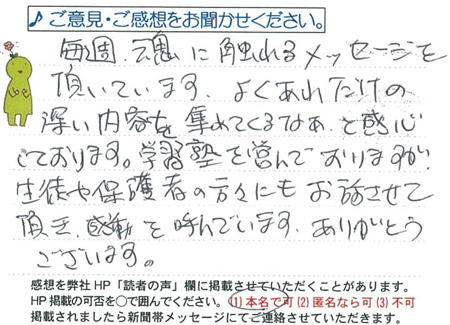 ♪ご意見・ご感想をお聞かせください。
毎週、魂に触れるメッセージを
頂いています。よくあれだけの
深い内容を集めてくるなぁ、と感心
しております。学習塾を営んでおりますが、
生徒や保護者の方々にもお話させて
頂き、感動を呼んでいます。ありがとう
ございます。
感想を弊社HP「読者の声」欄に掲載させていただくことがあります。
HP掲載の可否を○で囲んでください。(1)本名で可(2)匿名なら可(3)不可
掲載されましたら新聞帯メッセージにてご連絡させていただきます。